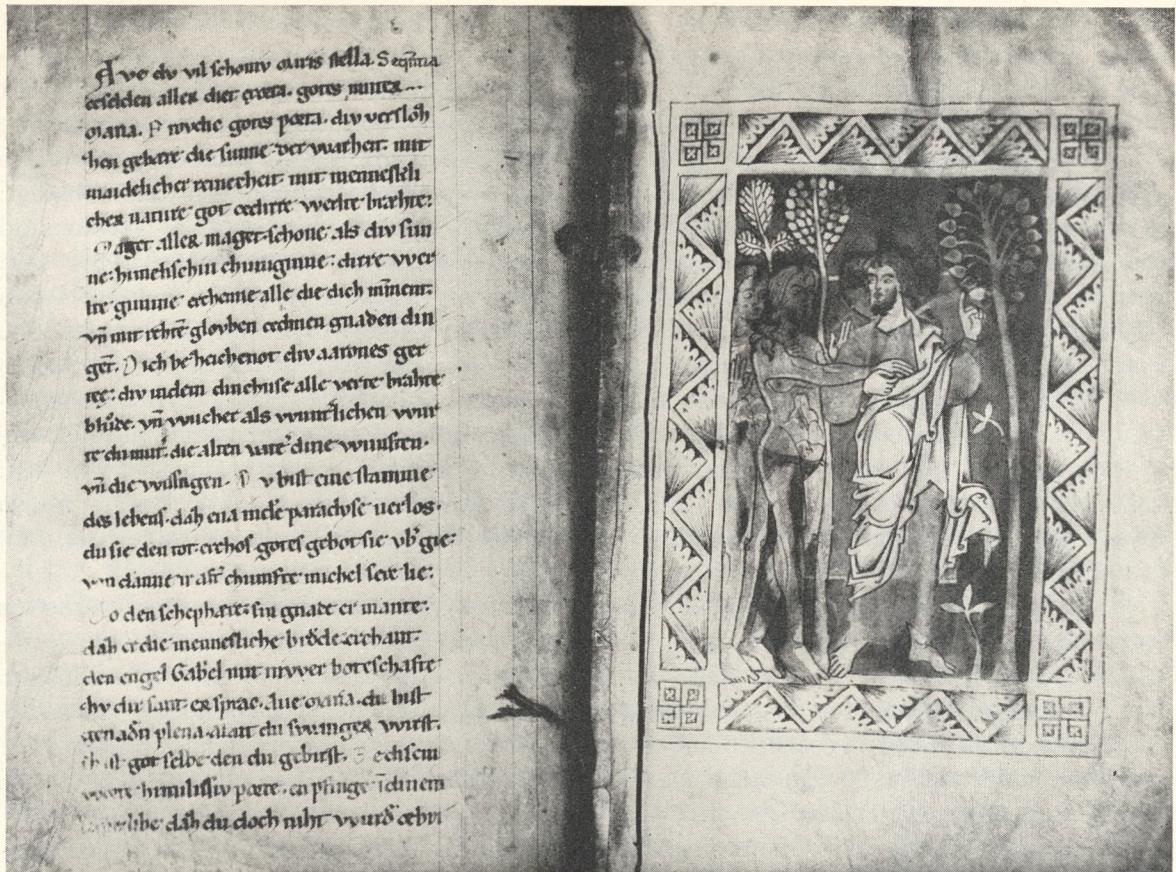 Ave dv vil schoniv maris stella. Seqn̄tia
ceselden aller diet exorta. gotes můter
maria. F rovche gotes porta. div verslôh
hen gebære die sunne der warheit. mit
maidelicher reinecheit. mit mennesli
cher nature got cedirre werlte bræhte:
Mager aller maget. schone als div sun
ne: himelischiu chuniginne: dirre wer
lte gimme erchenne alle die dich minent.
vn̄ mit rehtē glovben cedinen gnaden din
gent. Dich beceichenot div aarones ger
te: div indem
blůde. vn̄ wůcher als wntirlichen wur
te du můt. die alten
vn̄ die wissagen. Dv bist eine stamme
des lebens. dah eua in dem paradyse uerlos.
du sie den tot erchos gotes gebot sie vbˀgie:
von danne ir aftˀchumfte michel sere lie:
Do den schephære sin gnade er mante:
dah er die mennesliche brôde erchant.
den engel Gabˀel mit niwer boteschafte
er sprac. Aue maria. du bist
genadn̄ plena. du swanger wirst.
ih ist got selbe den du gebirst. Cechsem
worte humilissiv porte. enpfinge īdinem
libe dah du doch niht wurdˀ